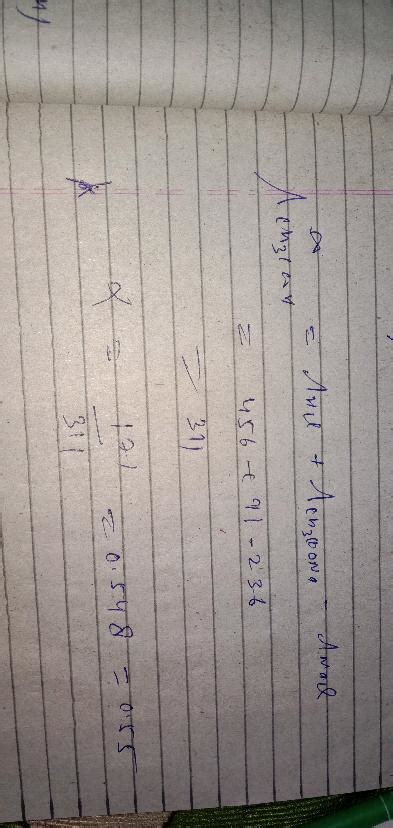 Λ∞ CH3COOH = ΛHCl + ΛCH3COONa - ΛNaCl
= 456 + 91 - 236
= 311
α = 171/311 = 0.548 = 0.55